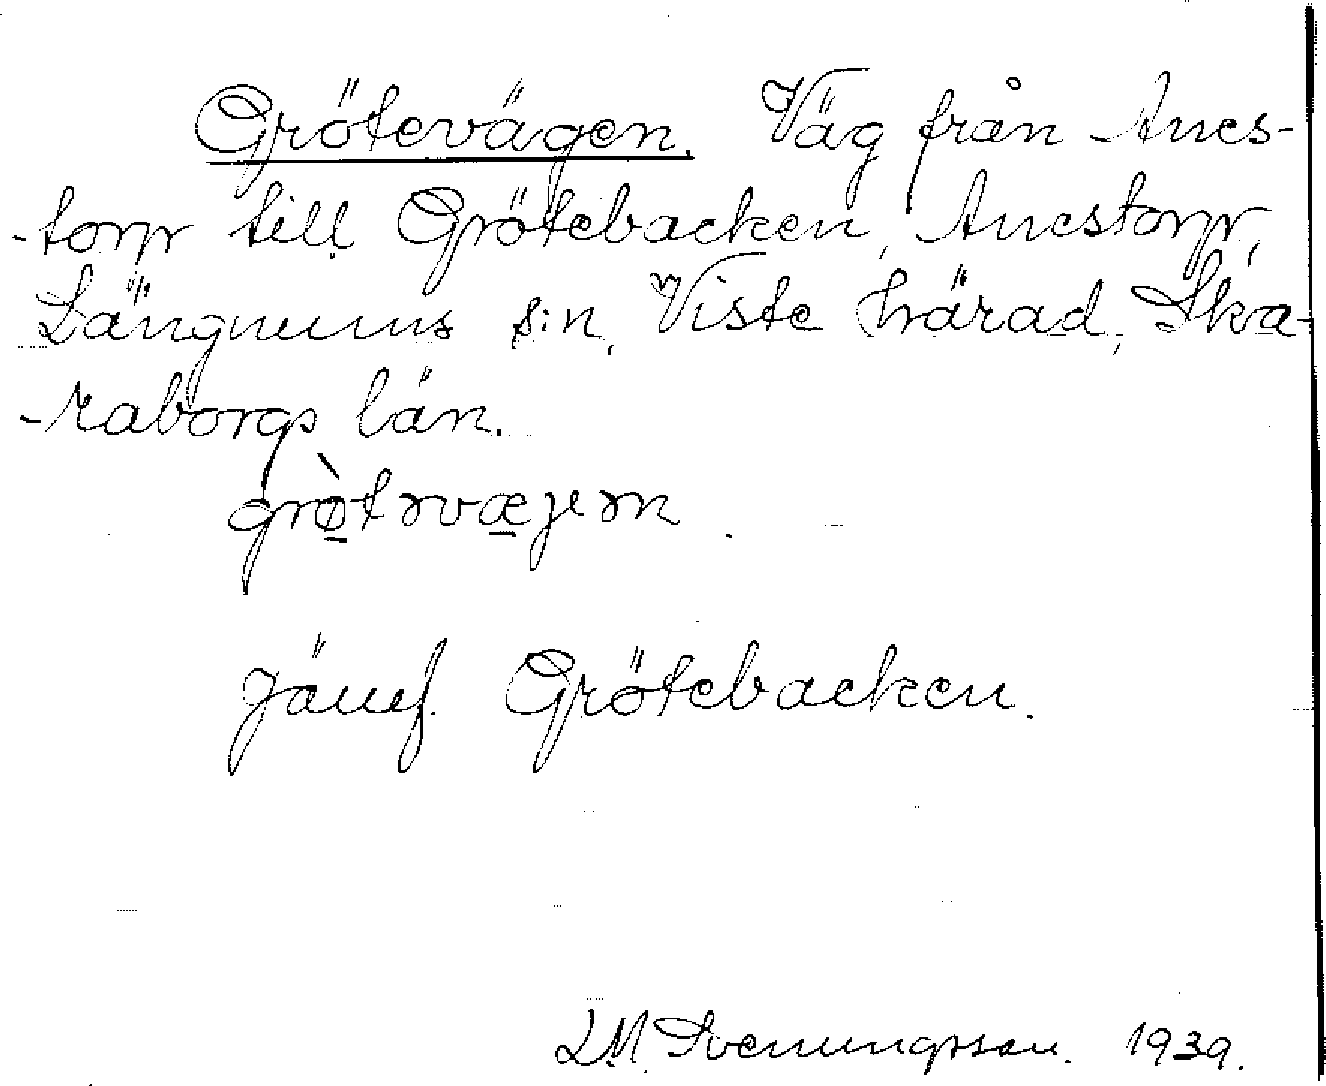 Grötevägen. Väg från Anes-
-torp till Grötebacken, Anestorp,
Längnums s:n, Viste härad, Ska-
-raborgs län.
Jämf. Grötebacken.
L.M. Svenungsson. 1939.